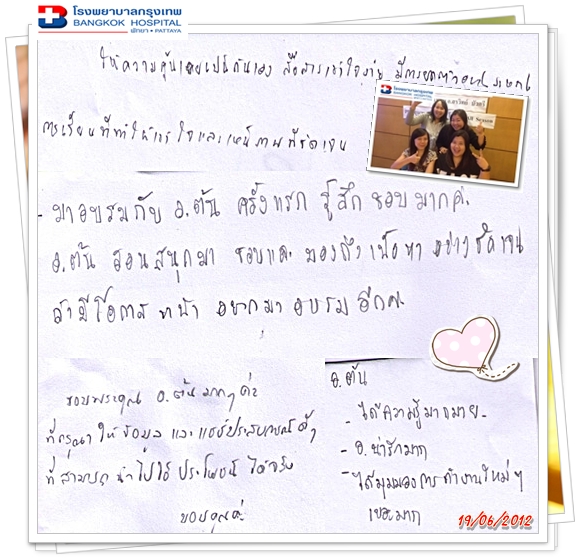 โรงพยาบาลกรุงเทพ
BANGKOK HOSPITAL
พัทยา • PATTAYA
ให้ความคุ้นเคยเป็นกันเอง สื่อสารเข้าใจง่าย มีการยกตัวอย่าง
การเรียนที่ทำให้เข้าใจและเห็นภาพที่ชัดเจน
โรงพยาบาลกรุงเทพ
BANGKOK HOSPITAL
- มาอบรมกับ อ.ต้น ครั้งแรก รู้สึก ชอบมากค่ะ
อ.ต้น สอนสนุกมา ชอบและ มองถึง เนื้อหา อย่างชัดเจน
ถ้ามีโอกาส หน้า อยากมา อบรม อีกค่ะ
ขอบพระคุณ อ.ต้น มากๆ ค่ะ
ที่กรุณา ให้ ข้อมูล และ แชร์ประสบการณ์ดีๆ
ที่ สามารถ นำไปใช้ ประโยชน์ ได้จริง
ขอบคุณค่ะ
อ.ต้น
- ได้ความรู้มากมาย
- อ.น่ารักมาก
- ได้มุมมองการทำงานใหม่ๆ
เยอะมาก
19/06/2012